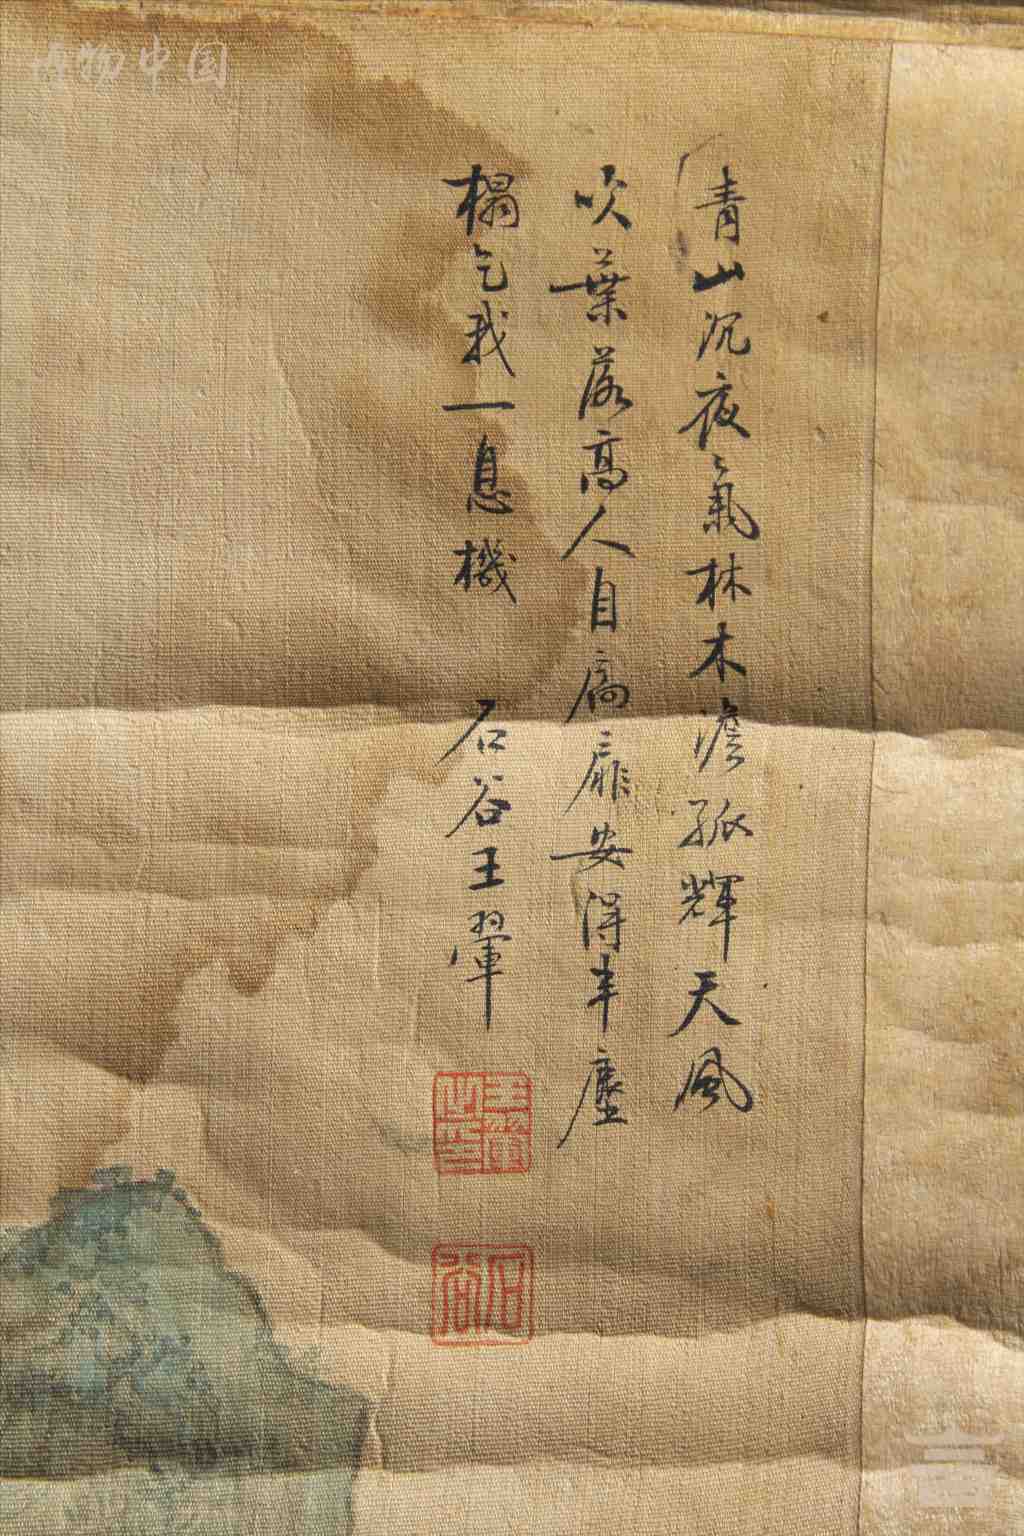 青山沉夜氣林木澹孤輝天風
吹葉落高人自扃扉安得半塵
榻乞我一息機 石谷王翬
王翬之印
石谷
博物中国